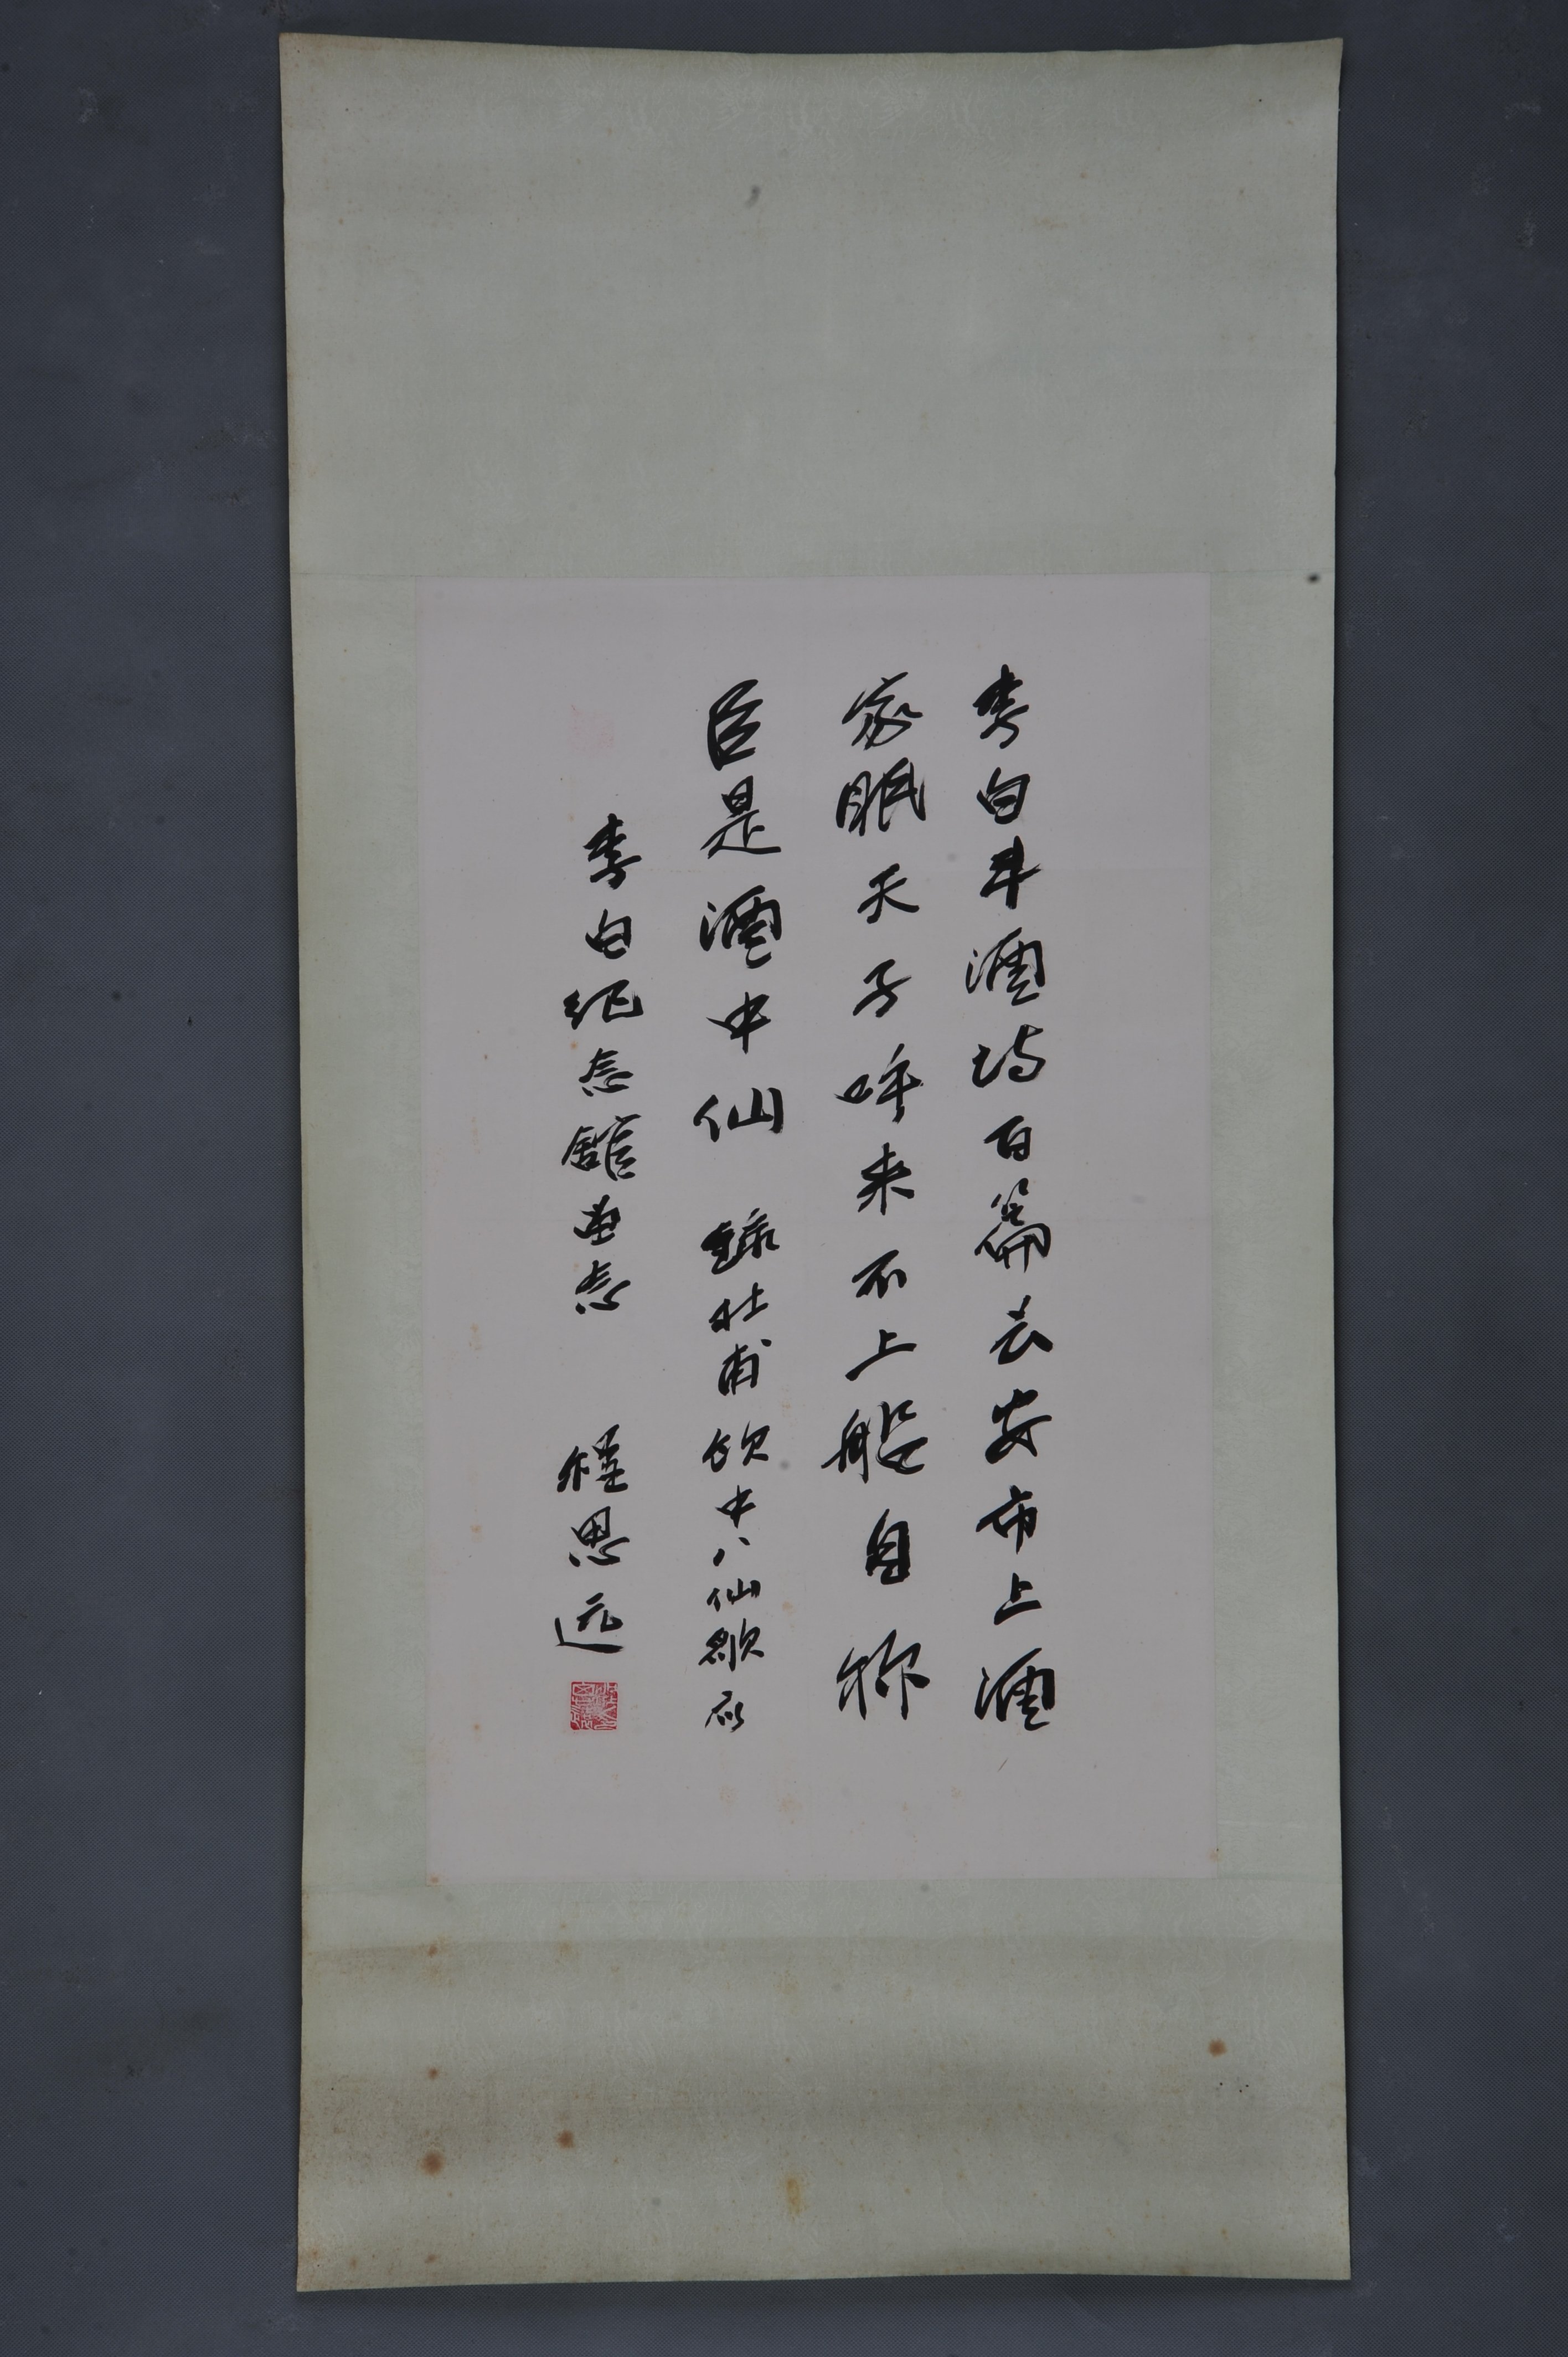 李白斗酒诗百篇长安市上酒
家眠天子呼来不上船自称
臣是酒中仙 録杜甫饮中八仙歌应
李白纪念舘留念 程思远